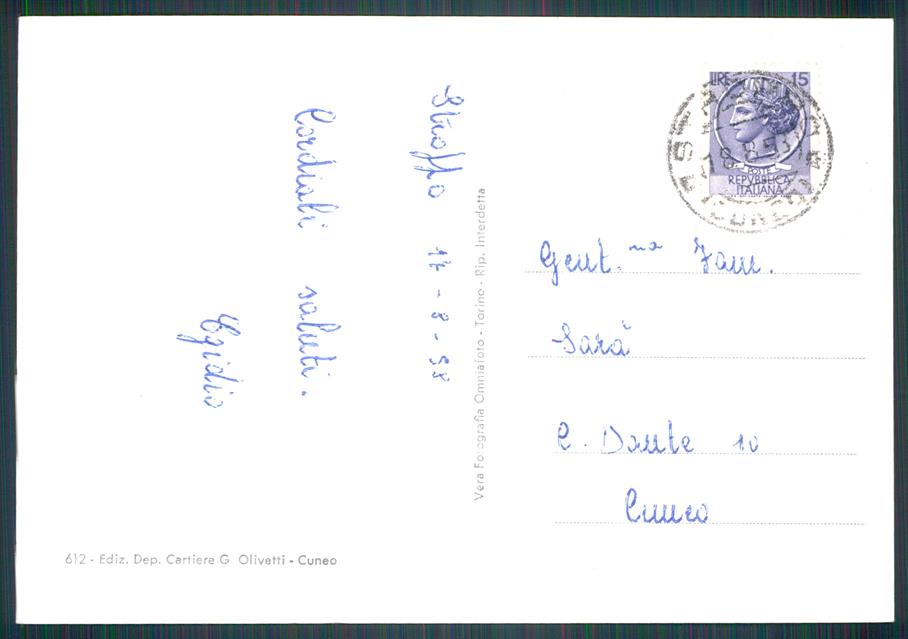 Stroppo 14-8-58
Cordiali saluti.
Egidio
612 - Ediz. Dep. Cartiere G. Olivetti - Cuneo
Vera Fotografia Omniafoto - Torino - Rip. Interdetta
LIRE 15
POSTE
REPVBBLICA
ITALIANA
Gent.ma Fam.
Sarà
C. Dante 10
Cuneo